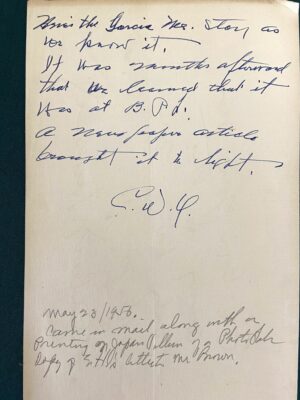 Here's the Garcia Me. Story as
we know it.
It was months afterward
that we learned that it
was at B. P. L.
A newspaper article
brought it to light.
E. W. Y.
May 23/1950.
Came in mail along with a
Printing of Japan of a
Copy of letter to Mr Brown.